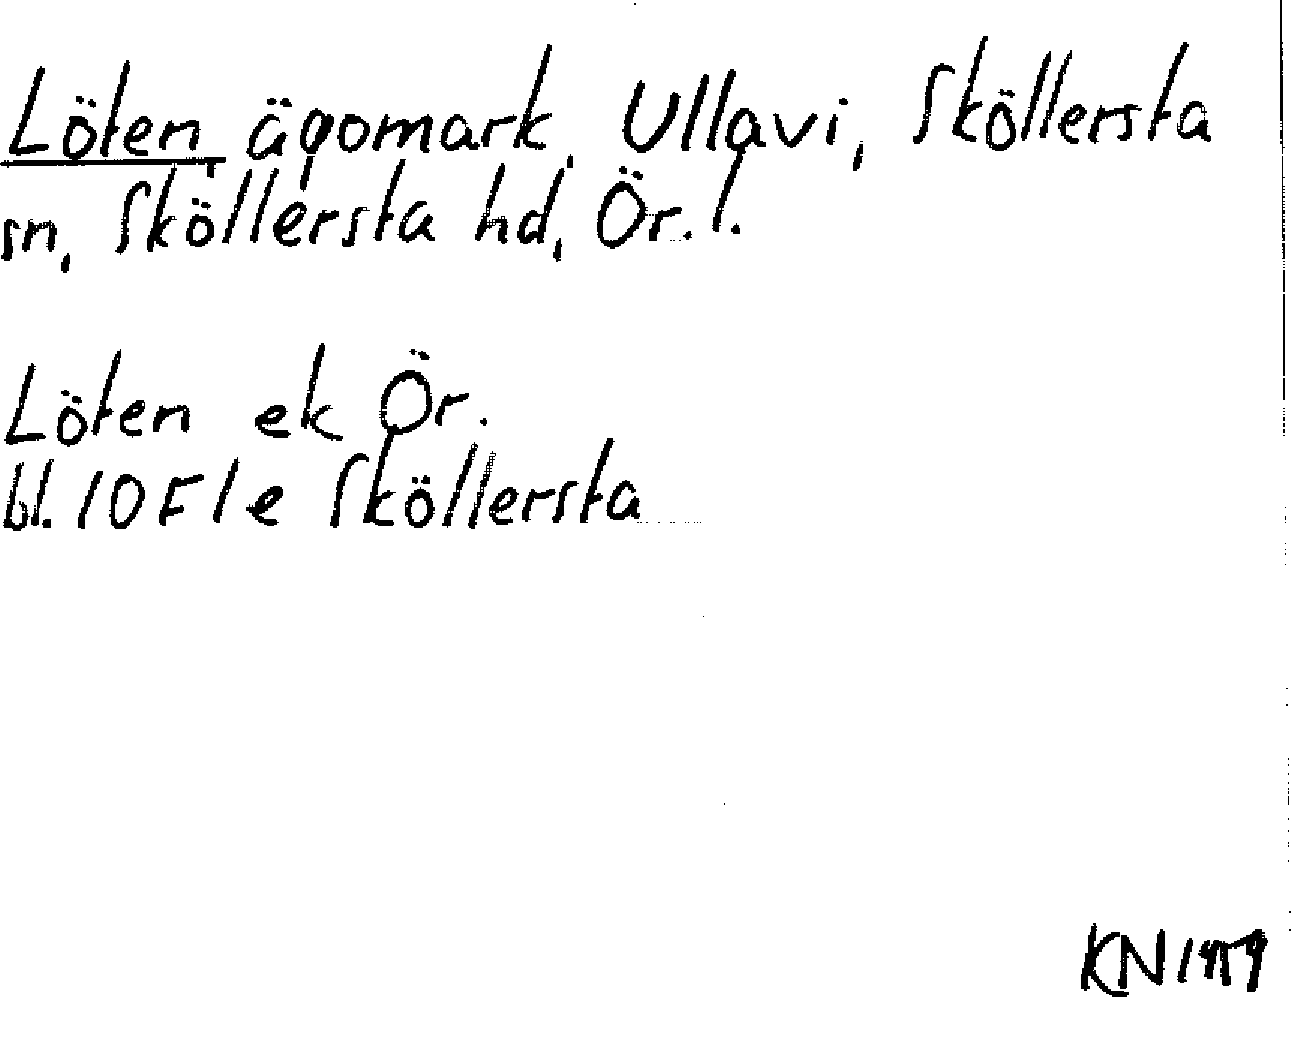 Löten, ägomark, Ullavi, Sköllersta
sn, Sköllersta hd, Ör.l.
Löten ek Ör.
bl. 10F1e Sköllersta
KN